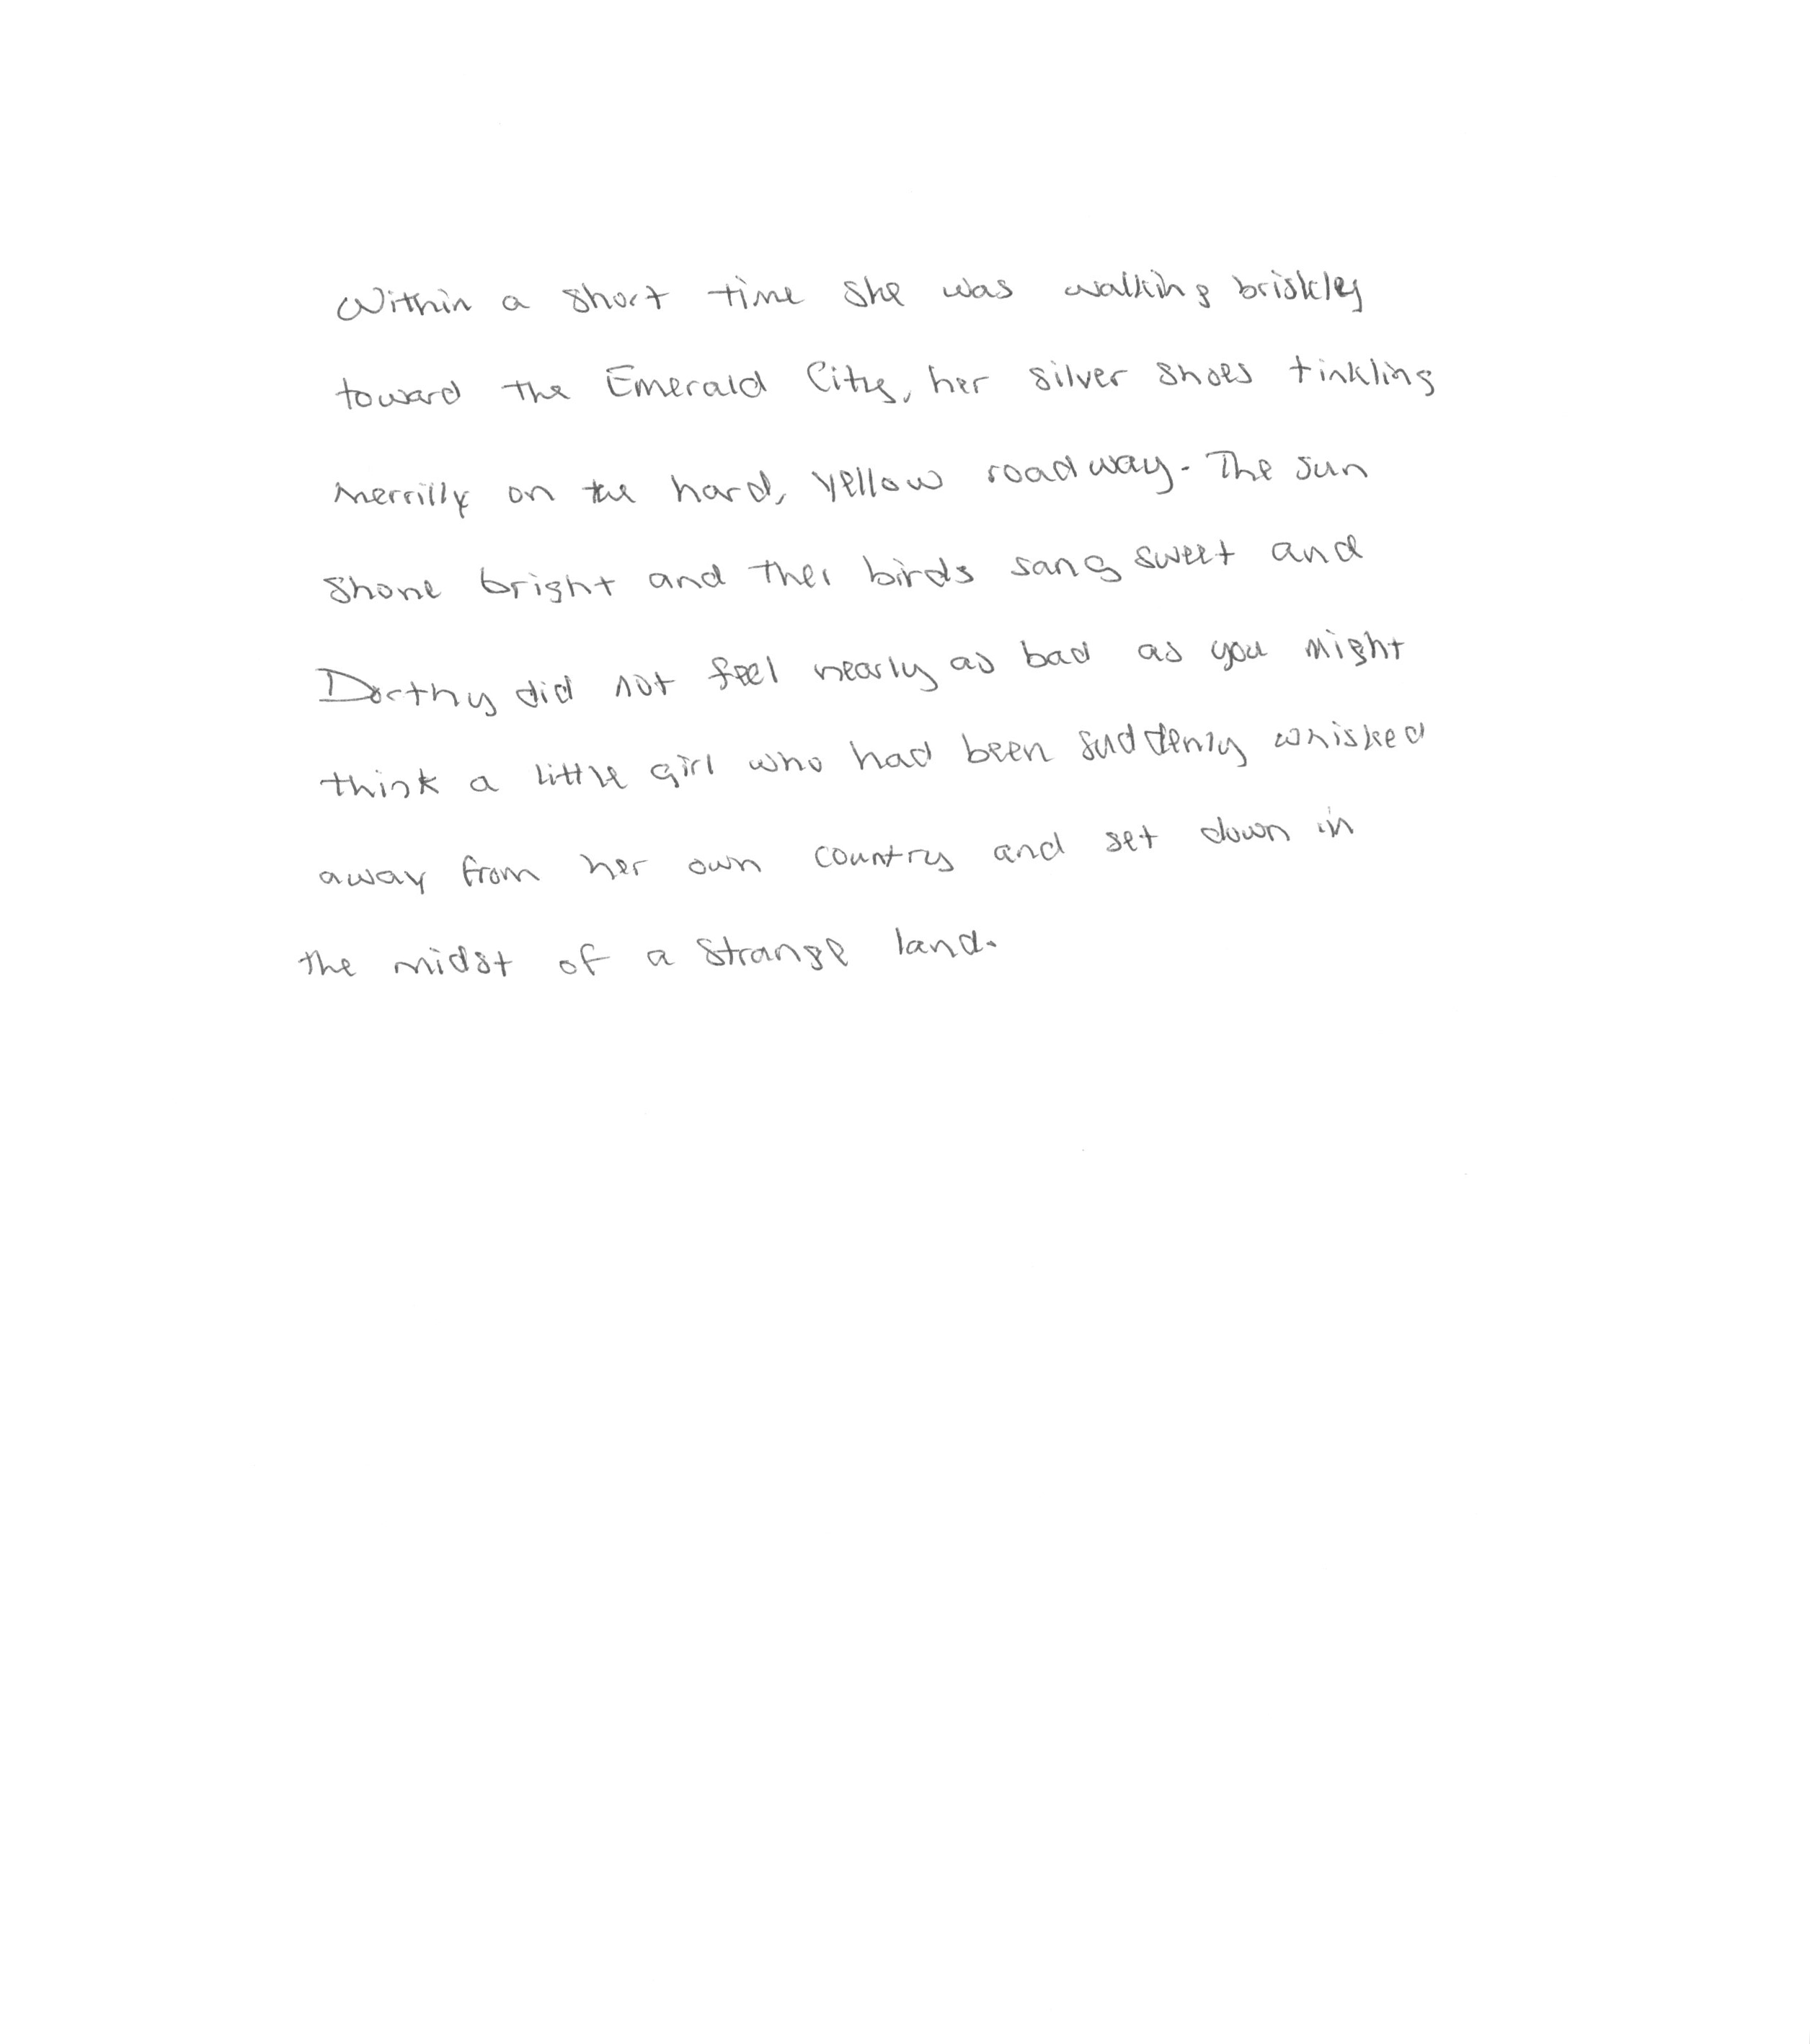 Within a short time she was walking briskley
toward the Emerald City, her silver shoes tinkling
merrilly on the hard, yellow roadway. The sun
shone bright and ther birds sang sweet and
Dorthy did not feel nearly as bad as you might
think a little girl who had been suddenly whisked
away from her own country and set down in
the midst of a strange land.